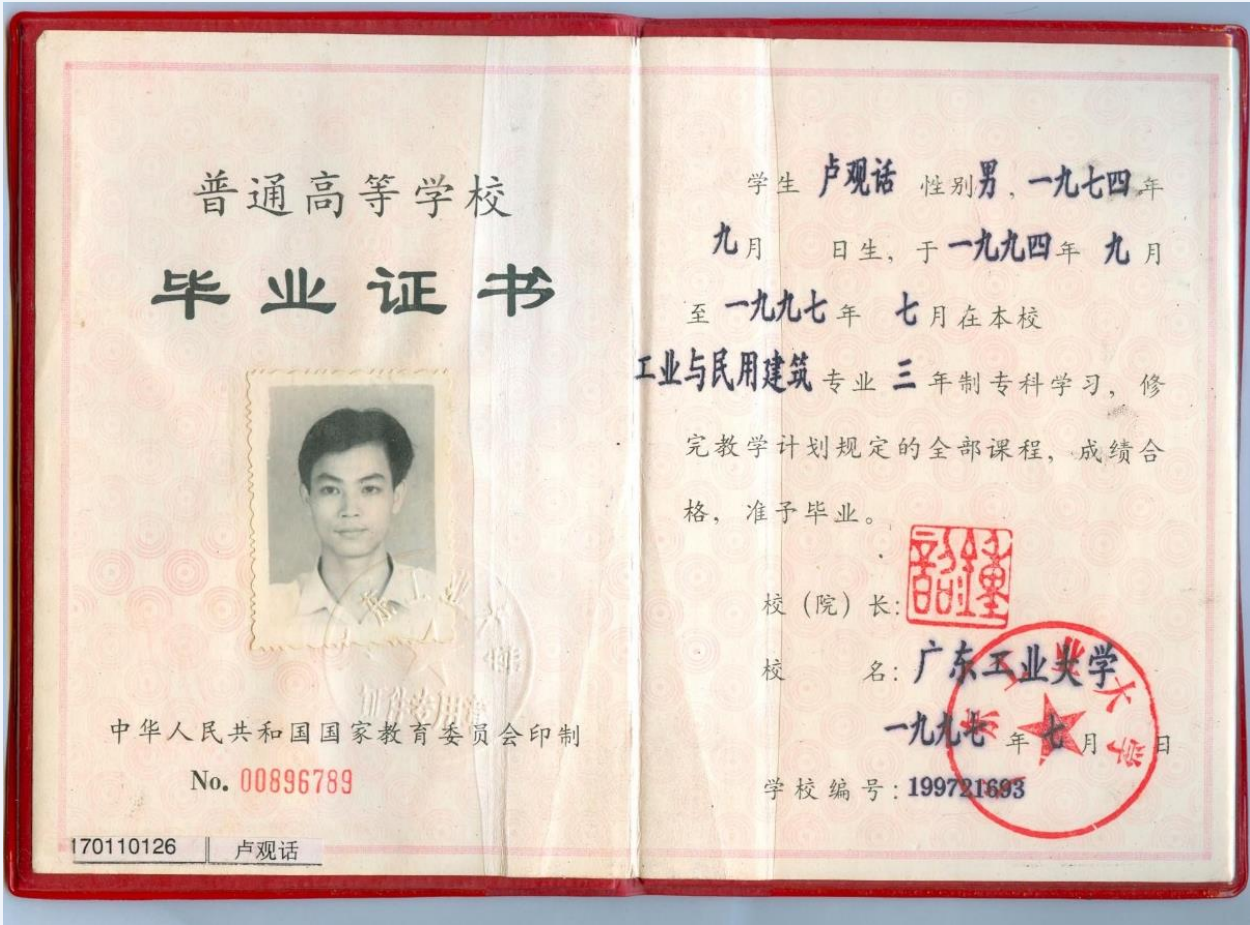 普通高等学校
毕业证书
证件专用章
中华人民共和国国家教育委员会印制
No. 00896789
170110126 卢观话
学生 卢观话 性别男，一九七四年
九月 日生，于一九九四年 九月
至一九九七年 七月在本校
工业与民用建筑专业 三 年制专科学习，修
完教学计划规定的全部课程，成绩合
格，准予毕业。
校（院）长：
校 名：广东工业大学
一九九七 年 七 月 日
学校编号：199721693